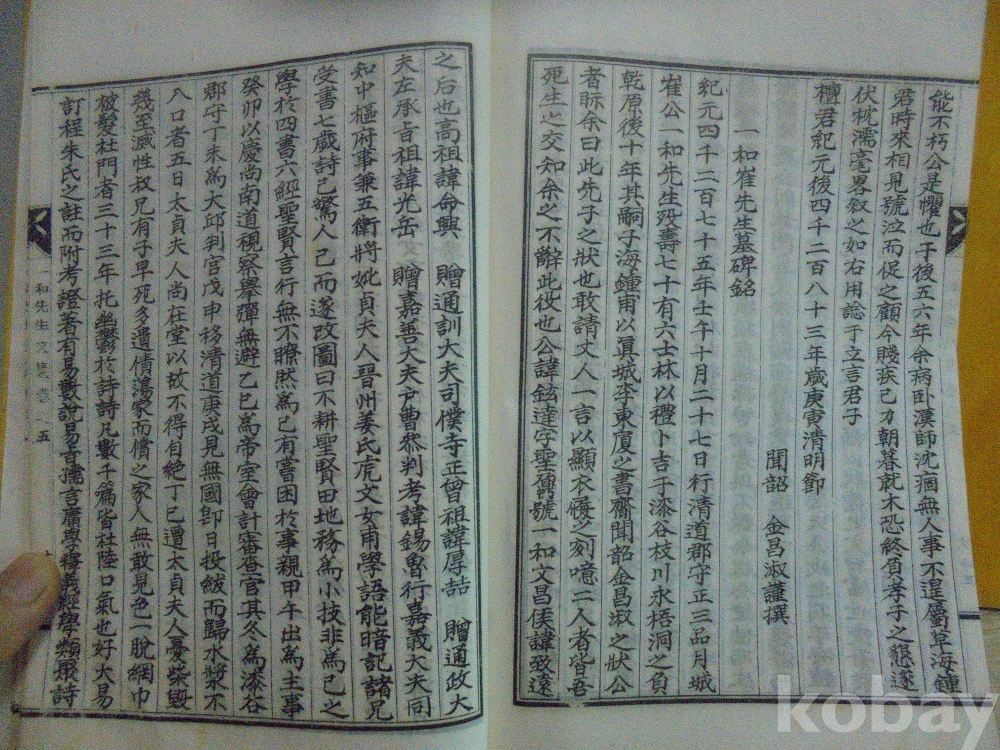 能不朽公是懼也于後五六年余病卧漢師沈痼無人事不遑屬草海鍾
君時來相見號泣而促之顧今賤疾己力朝暮就木恐終負孝子之懇遂
伏枕濡毫畧叙之如右用諗于立言君子
檀君紀元後四千二百八十三年歲庚寅清明節
聞韶 金昌淑謹撰
一和崔先生墓碑銘
紀元四千二百七十五年壬午十月二十七日行清道郡守正三品月城
崔公一和先生歿壽七十有六士林以禮卜吉于漆谷枝川永梧洞之負
乾原後十年其嗣子海鍾甫以眞城李東廈之書齎聞韶金昌淑之狀公
者眎余曰此先子之狀也敢請文人一言以顯衣履之刻噫二人者皆吾
死生之交知余之不辭此役也公諱鉉達字聖傅號一和文昌侯諱致遠
之后也高祖諱命興 贈通訓大夫司僕寺正曾祖諱厚喆 贈通政大
夫左承旨祖諱光岳 贈嘉善大夫戶曹叅判考諱錫魯行嘉義大夫同
知中樞府事兼五衛將妣貞夫人晉州姜氏虎文女甫學語能暗記諸兄
受書七歲詩己驚人己而遂改圖曰不耕聖賢田地務爲小技非爲己之
學於四書六經聖賢言行無不瞭然爲己有嘗困於事親甲午出爲主事
癸卯以慶尚南道視察舉彈無避乙巳爲帝室會計審查官其冬爲漆谷
郡守丁未爲大邱判官戊申移清道庚戌見無國卽日投紱而歸水漿不
入口者五日太貞夫人尚在堂以故不得自絶丁巳遭太貞夫人憂柴毁
幾至滅性叔兄有子早死多遺債蕩家而償之家人無敢見色一脫網巾
被髮杜門者三十三年托幽鬱於詩詩凡數千篇皆杜陸口氣也好大易
訂程朱氏之註而附考證著有易數說易言孺言廣學釋義經學類聚詩
一和先生文集卷 五
kobay